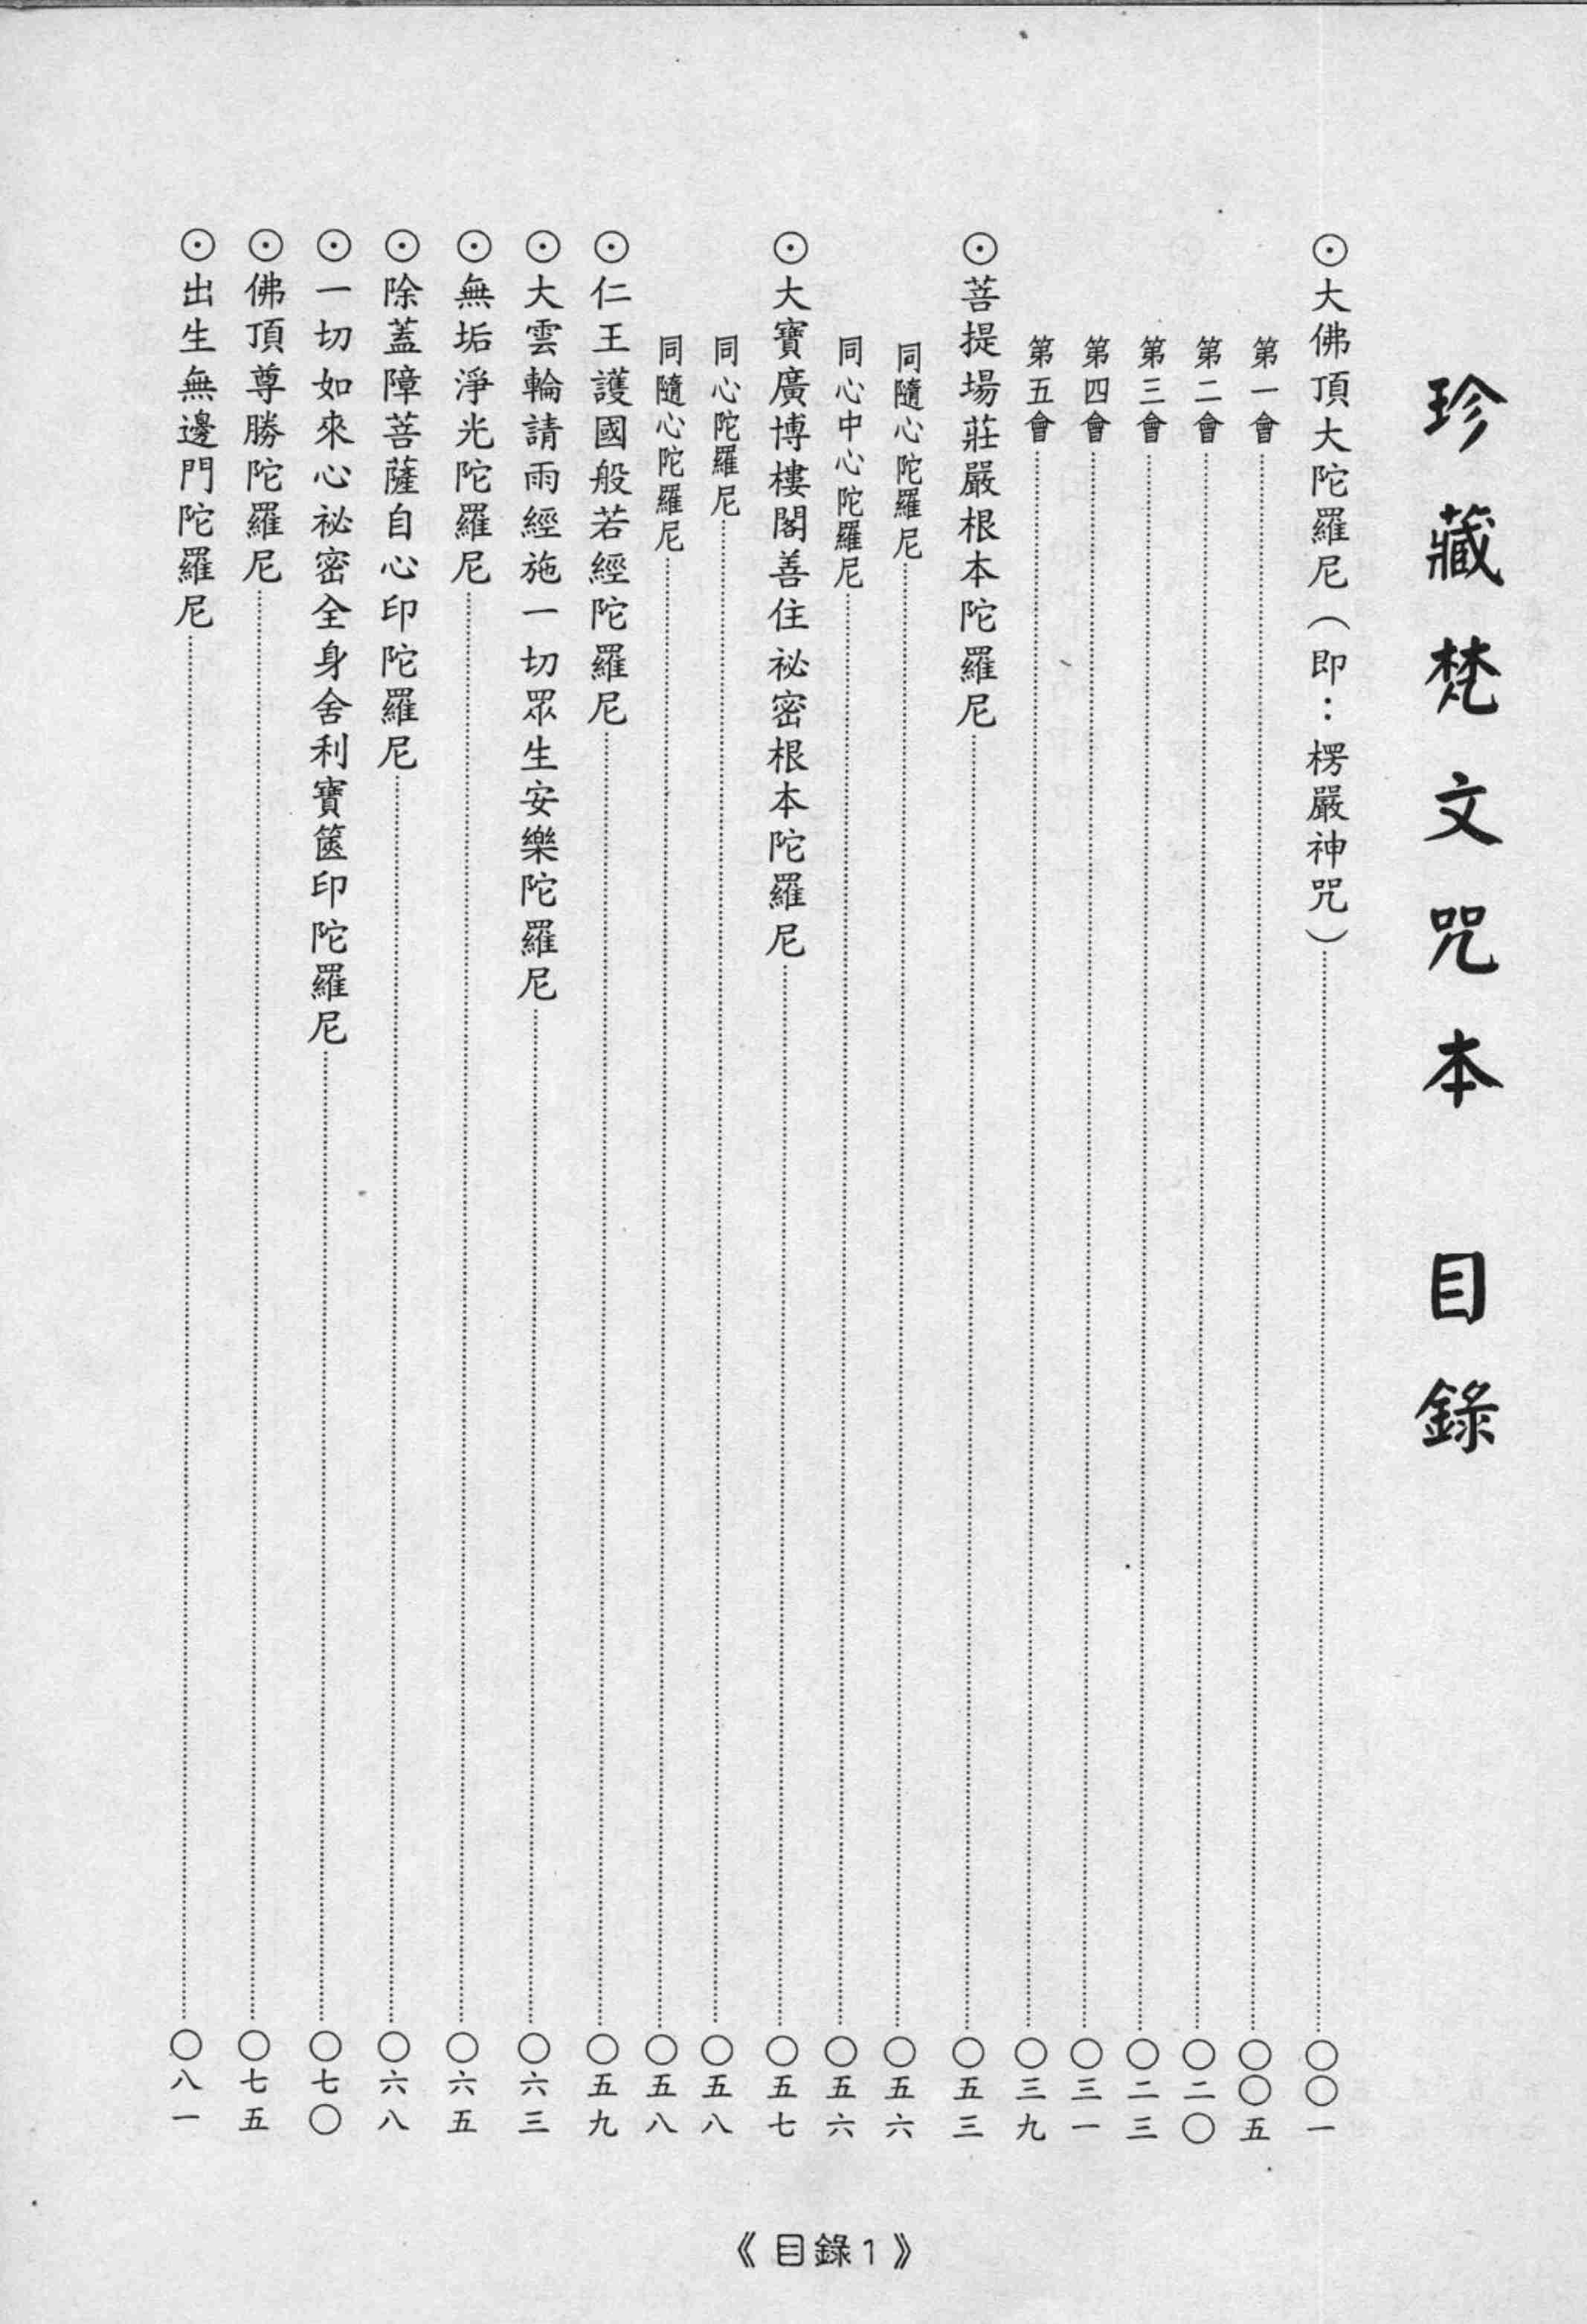 珍藏梵文咒本 目錄
⊙大佛頂大陀羅尼（即：楞嚴神咒）…………〇〇一
第一會…………〇〇五
第二會…………〇二〇
第三會…………〇二三
第四會…………〇三一
第五會…………〇三九
⊙菩提場莊嚴根本陀羅尼…………〇五三
同隨心陀羅尼…………〇五六
同心中心陀羅尼…………〇五六
⊙大寶廣博樓閣善住祕密根本陀羅尼…………〇五七
同心陀羅尼…………〇五八
同隨心陀羅尼…………〇五八
⊙仁王護國般若經陀羅尼…………〇五九
⊙大雲輪請雨經施一切眾生安樂陀羅尼…………〇六三
⊙無垢淨光陀羅尼…………〇六五
⊙除蓋障菩薩自心印陀羅尼…………〇六八
⊙一切如來心祕密全身舍利寶篋印陀羅尼…………〇七〇
⊙佛頂尊勝陀羅尼…………〇七五
⊙出生無邊門陀羅尼…………〇八一
《目錄1》